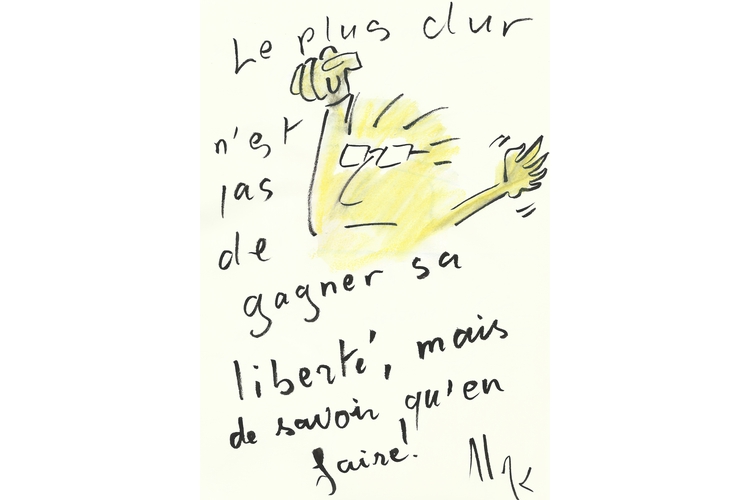 Le plus dur
n'est
pas
de
gagner sa
liberté, mais
de savoir qu'en
faire!